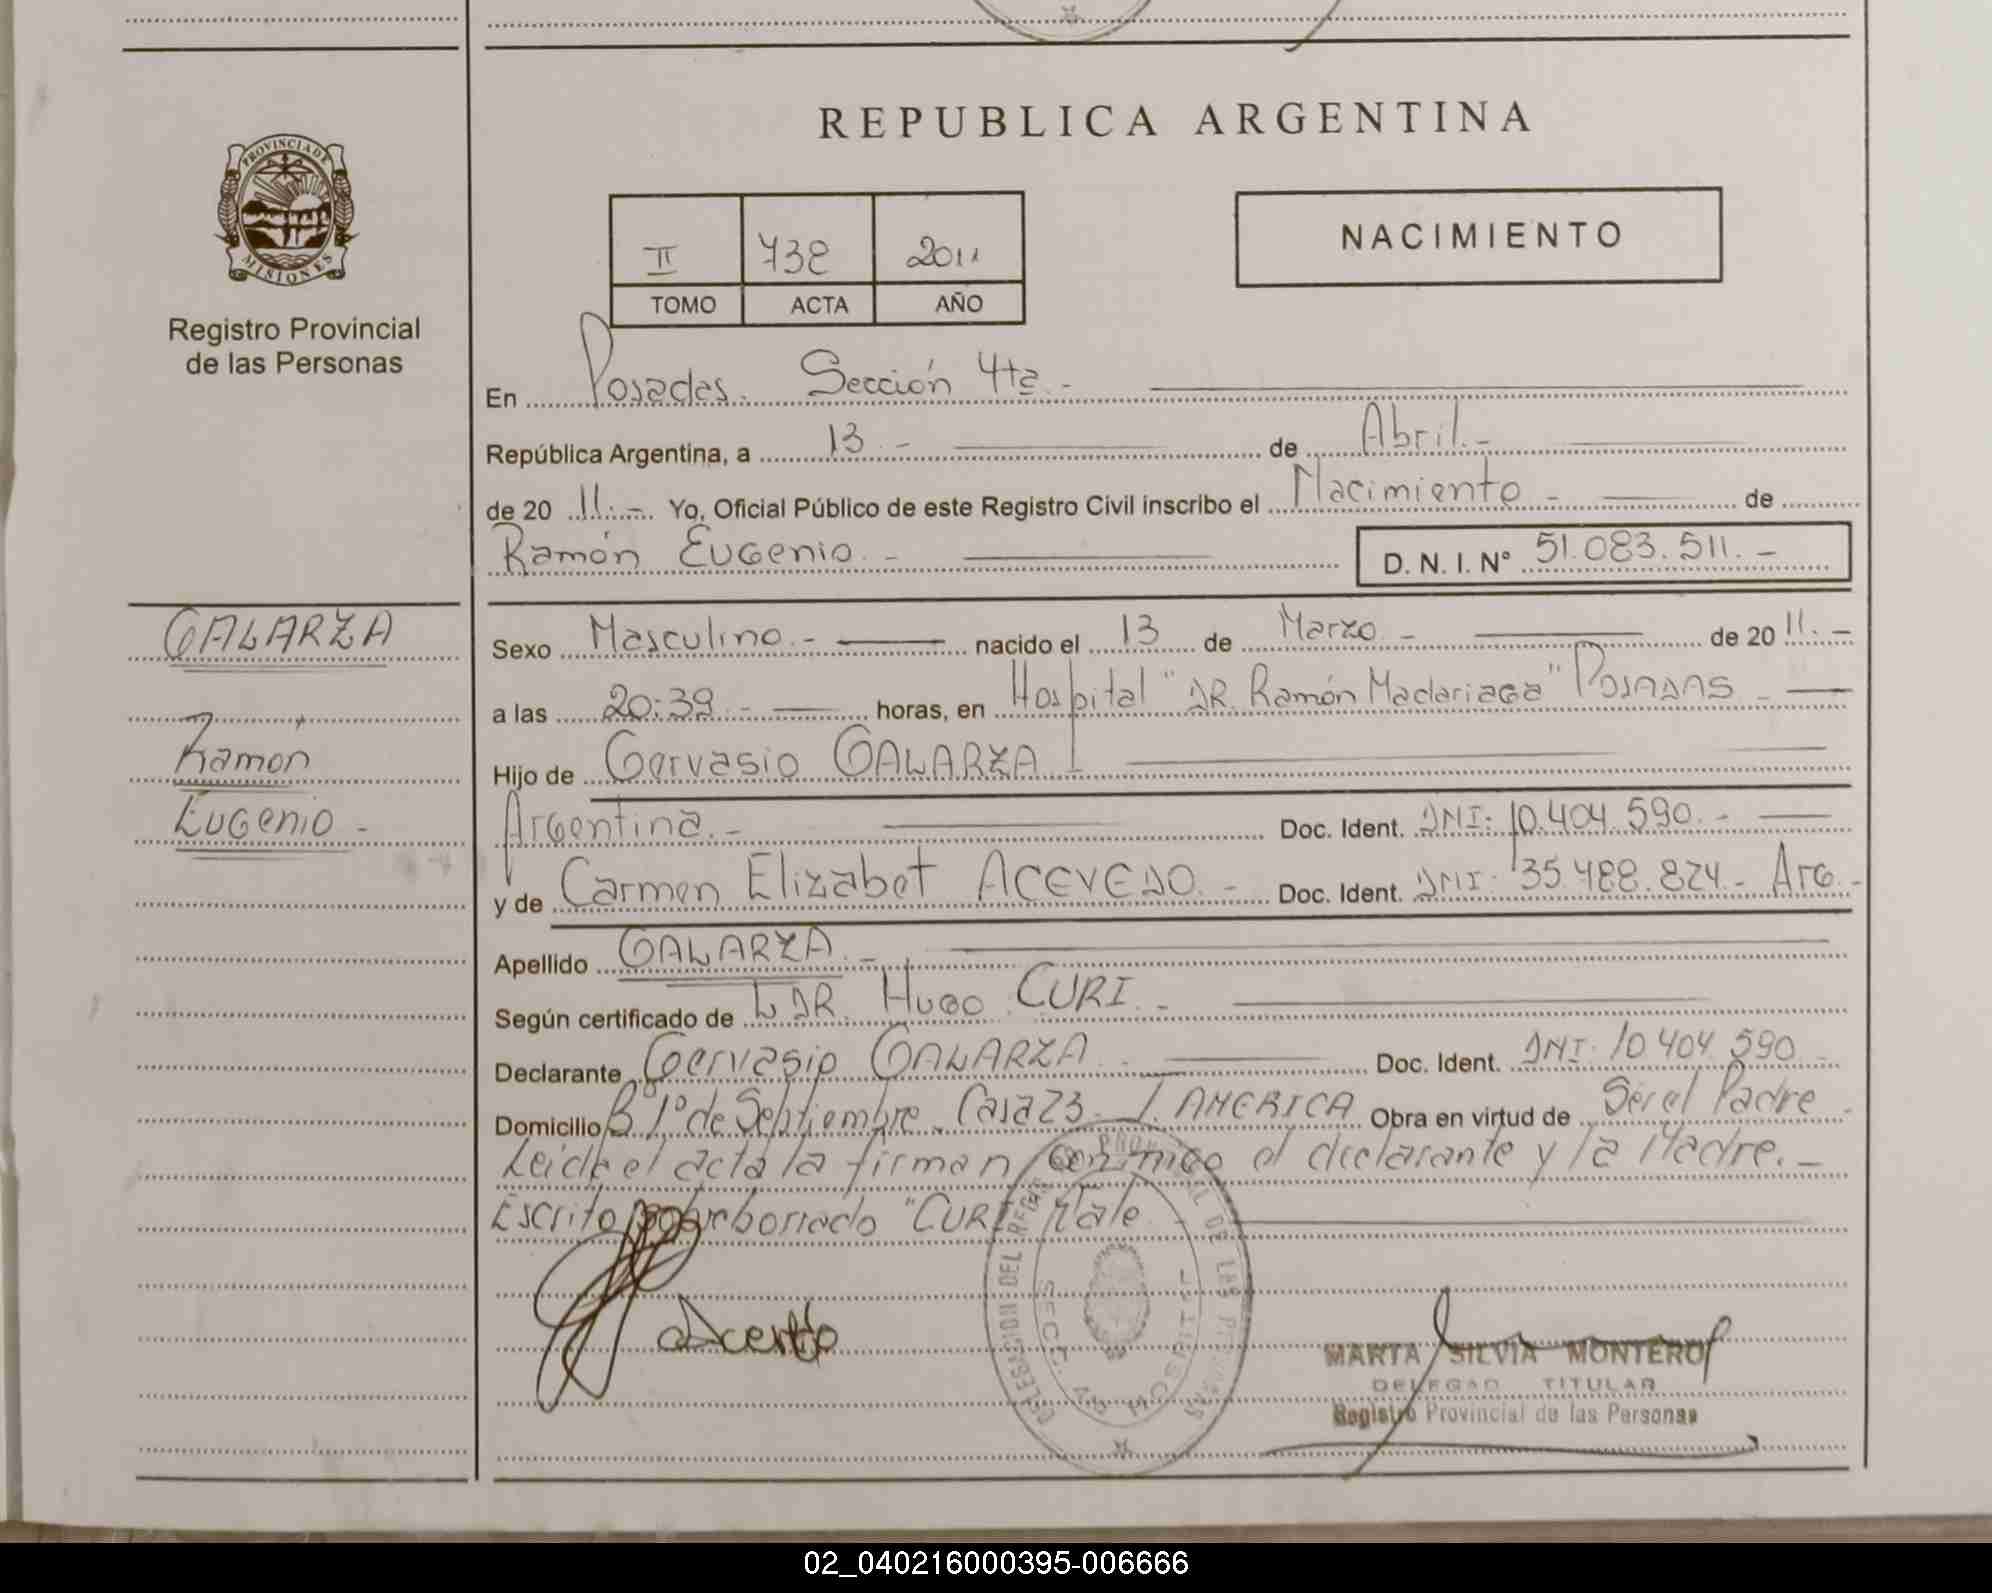 REPUBLICA ARGENTINA
PROVINCIA DE MISIONES
Registro Provincial
de las Personas
II 738 2011
TOMO ACTA AÑO
NACIMIENTO
En Posadas. Sección 4ta.-
República Argentina, a 13.- de Abril.-
de 20 11.- Yo, Oficial Público de este Registro Civil inscribo el Nacimiento - de
Ramón Eugenio.- D. N. I. Nº 51.083.511.-
GALARZA
Ramón
Eugenio -
Sexo Masculino.- nacido el 13 de Marzo - de 20 11.-
a las 20:39.- horas, en Hospital "DR. Ramón Madariaga" POSADAS -
Hijo de Gervasio GALARZA
Argentina.- Doc. Ident. DNI: 10.404.590.-
y de Carmen Elizabet ACEVEDO.- Doc. Ident. DNI: 35.488.824.- Arg.-
Apellido GALARZA.-
Según certificado de DR. Hugo CURI.-
Declarante Gervasio GALARZA.- Doc. Ident. DNI: 10.404.590.-
Domicilio Bº 1º de Septiembre. Casa 23. I. AMERICA Obra en virtud de Ser el Padre.-
Leida el acta la firman conmigo el declarante y la Madre.-
Escrito sobreborrado "CURI" Vale.
Acevedo
DELEGACION DEL REGISTRO PROVINCIAL DE LAS PERSONAS
SECC. 4ta HOSPITAL
MARTA SILVIA MONTERO
DELEGAD TITULAR
Registro Provincial de las Personas
02_040216000395-006666